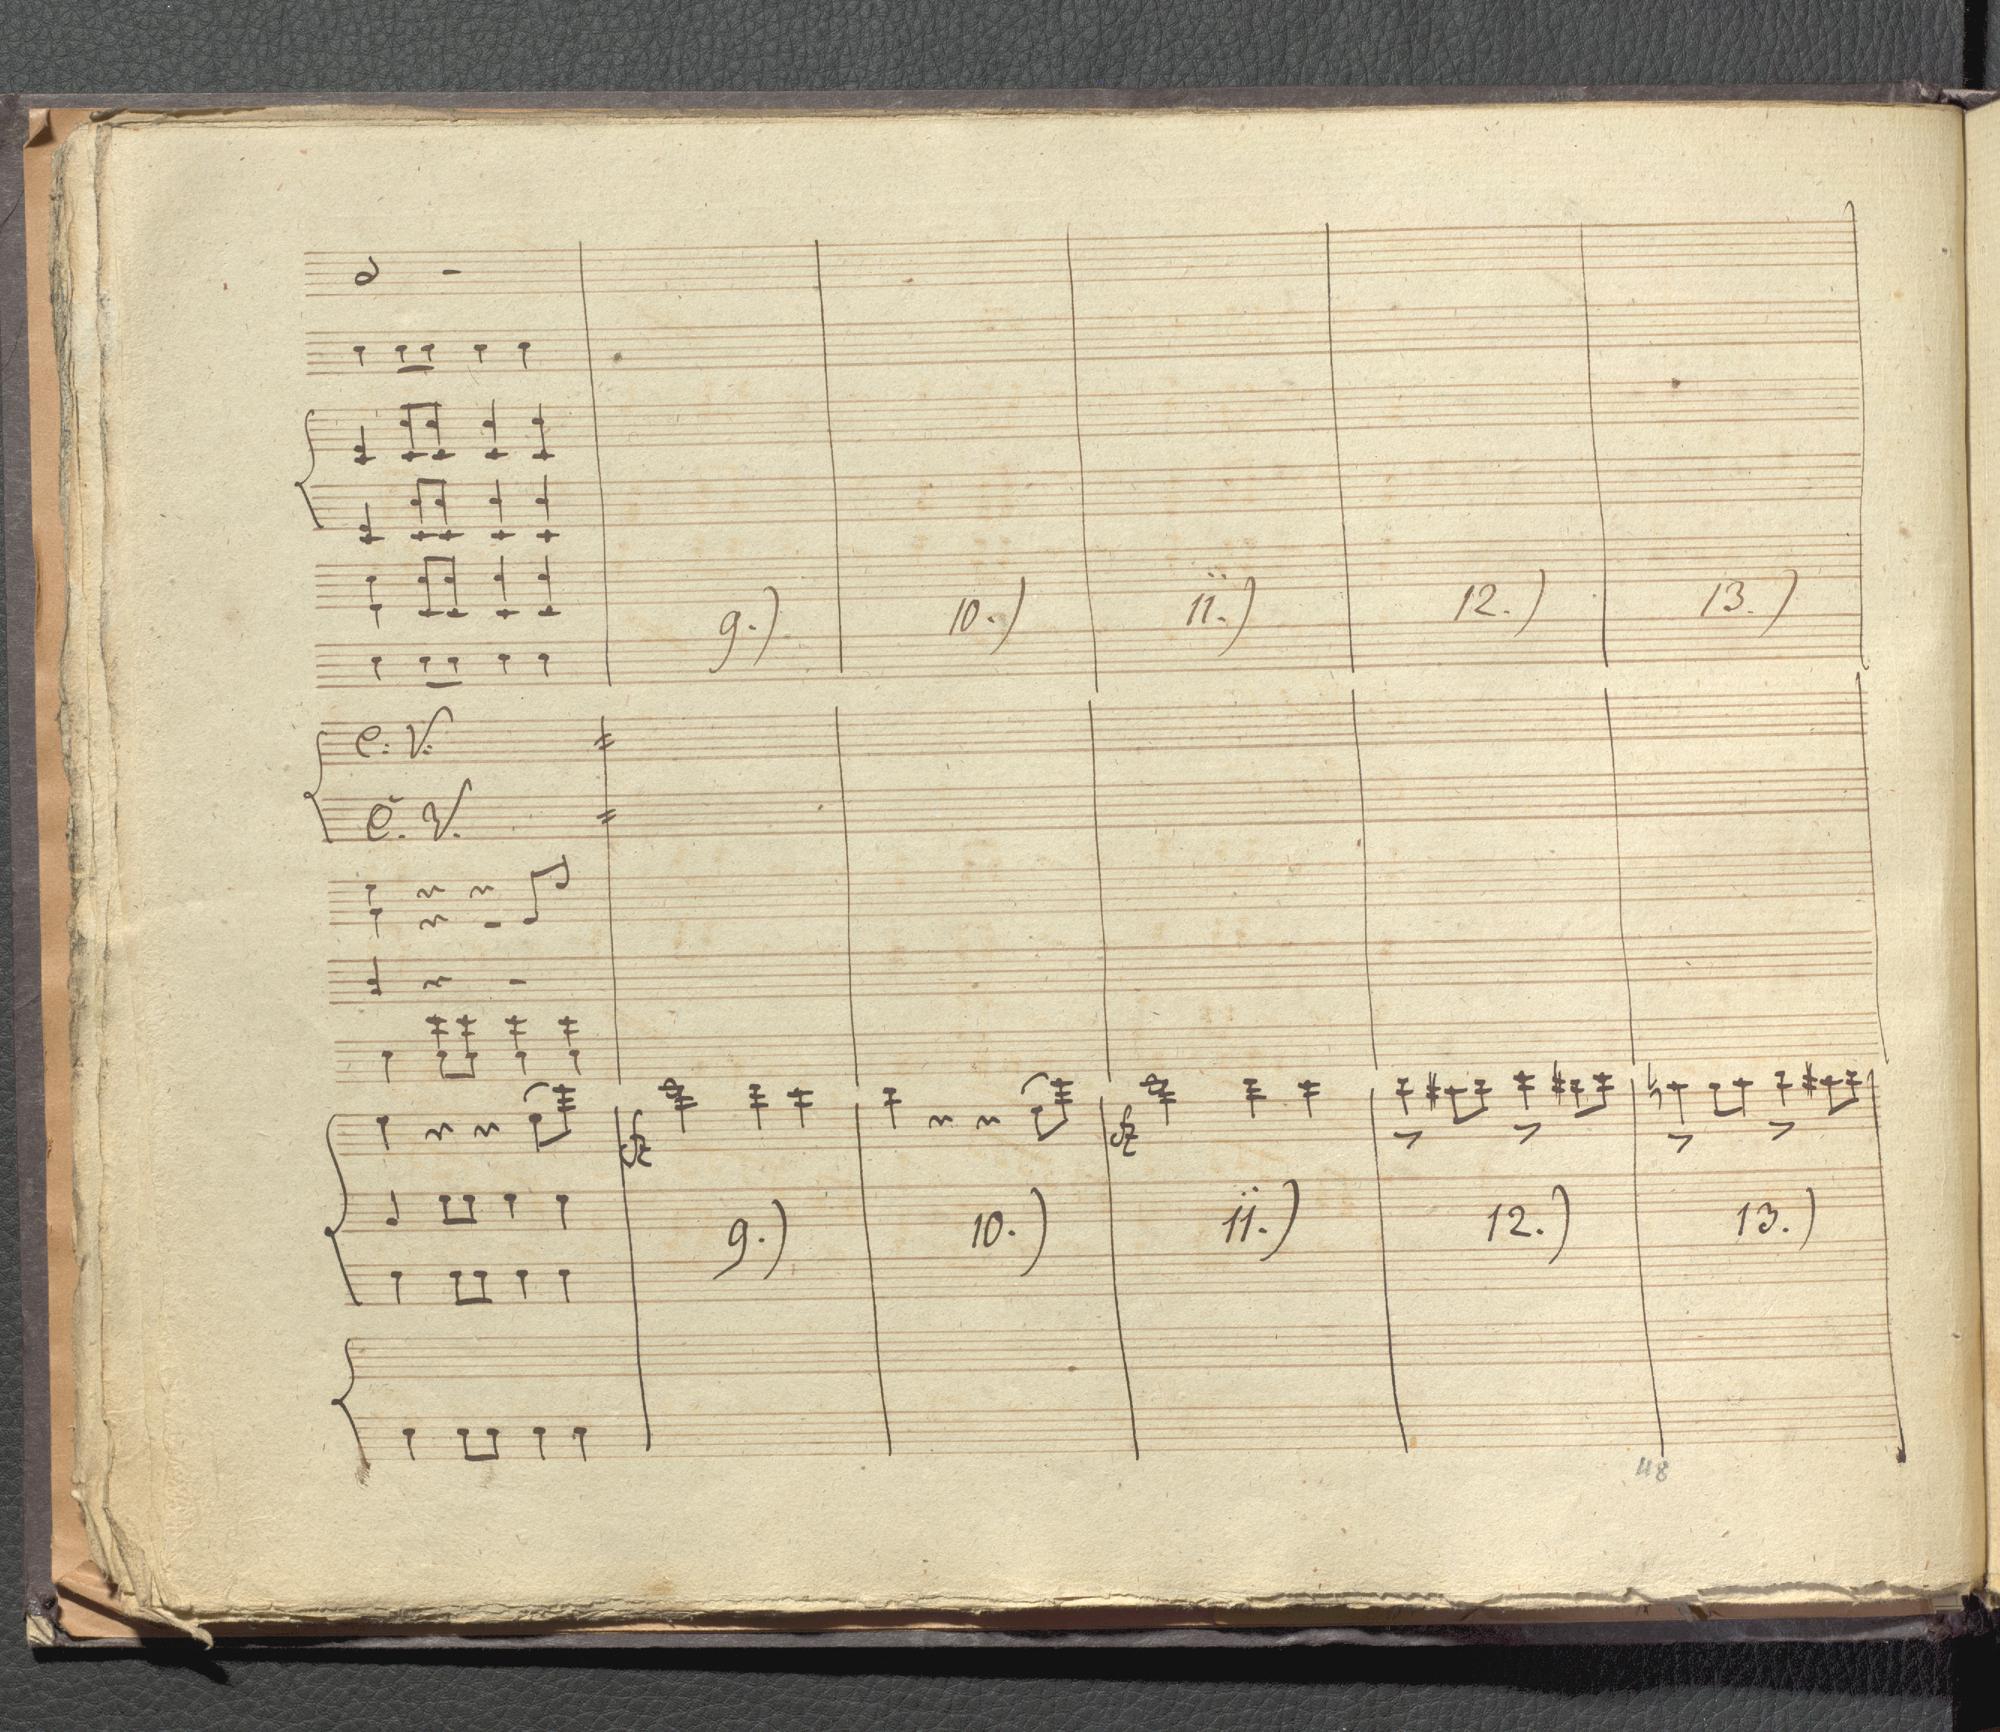 9.) 10.) 11.) 12.) 13.)
C. V.
C. V.
fz fz
9.) 10.) 11.) 12.) 13.)
48